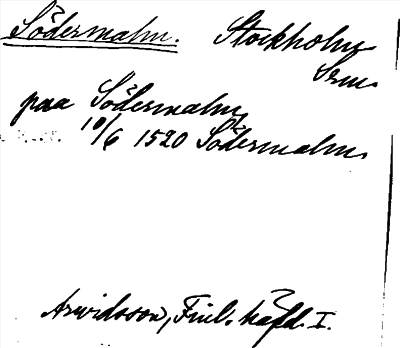 Södermalm. Stockholm
Srm.
paa Södermalm
10/6 1520 Södermalm.
Arwidsson, Finl. häfd. I.